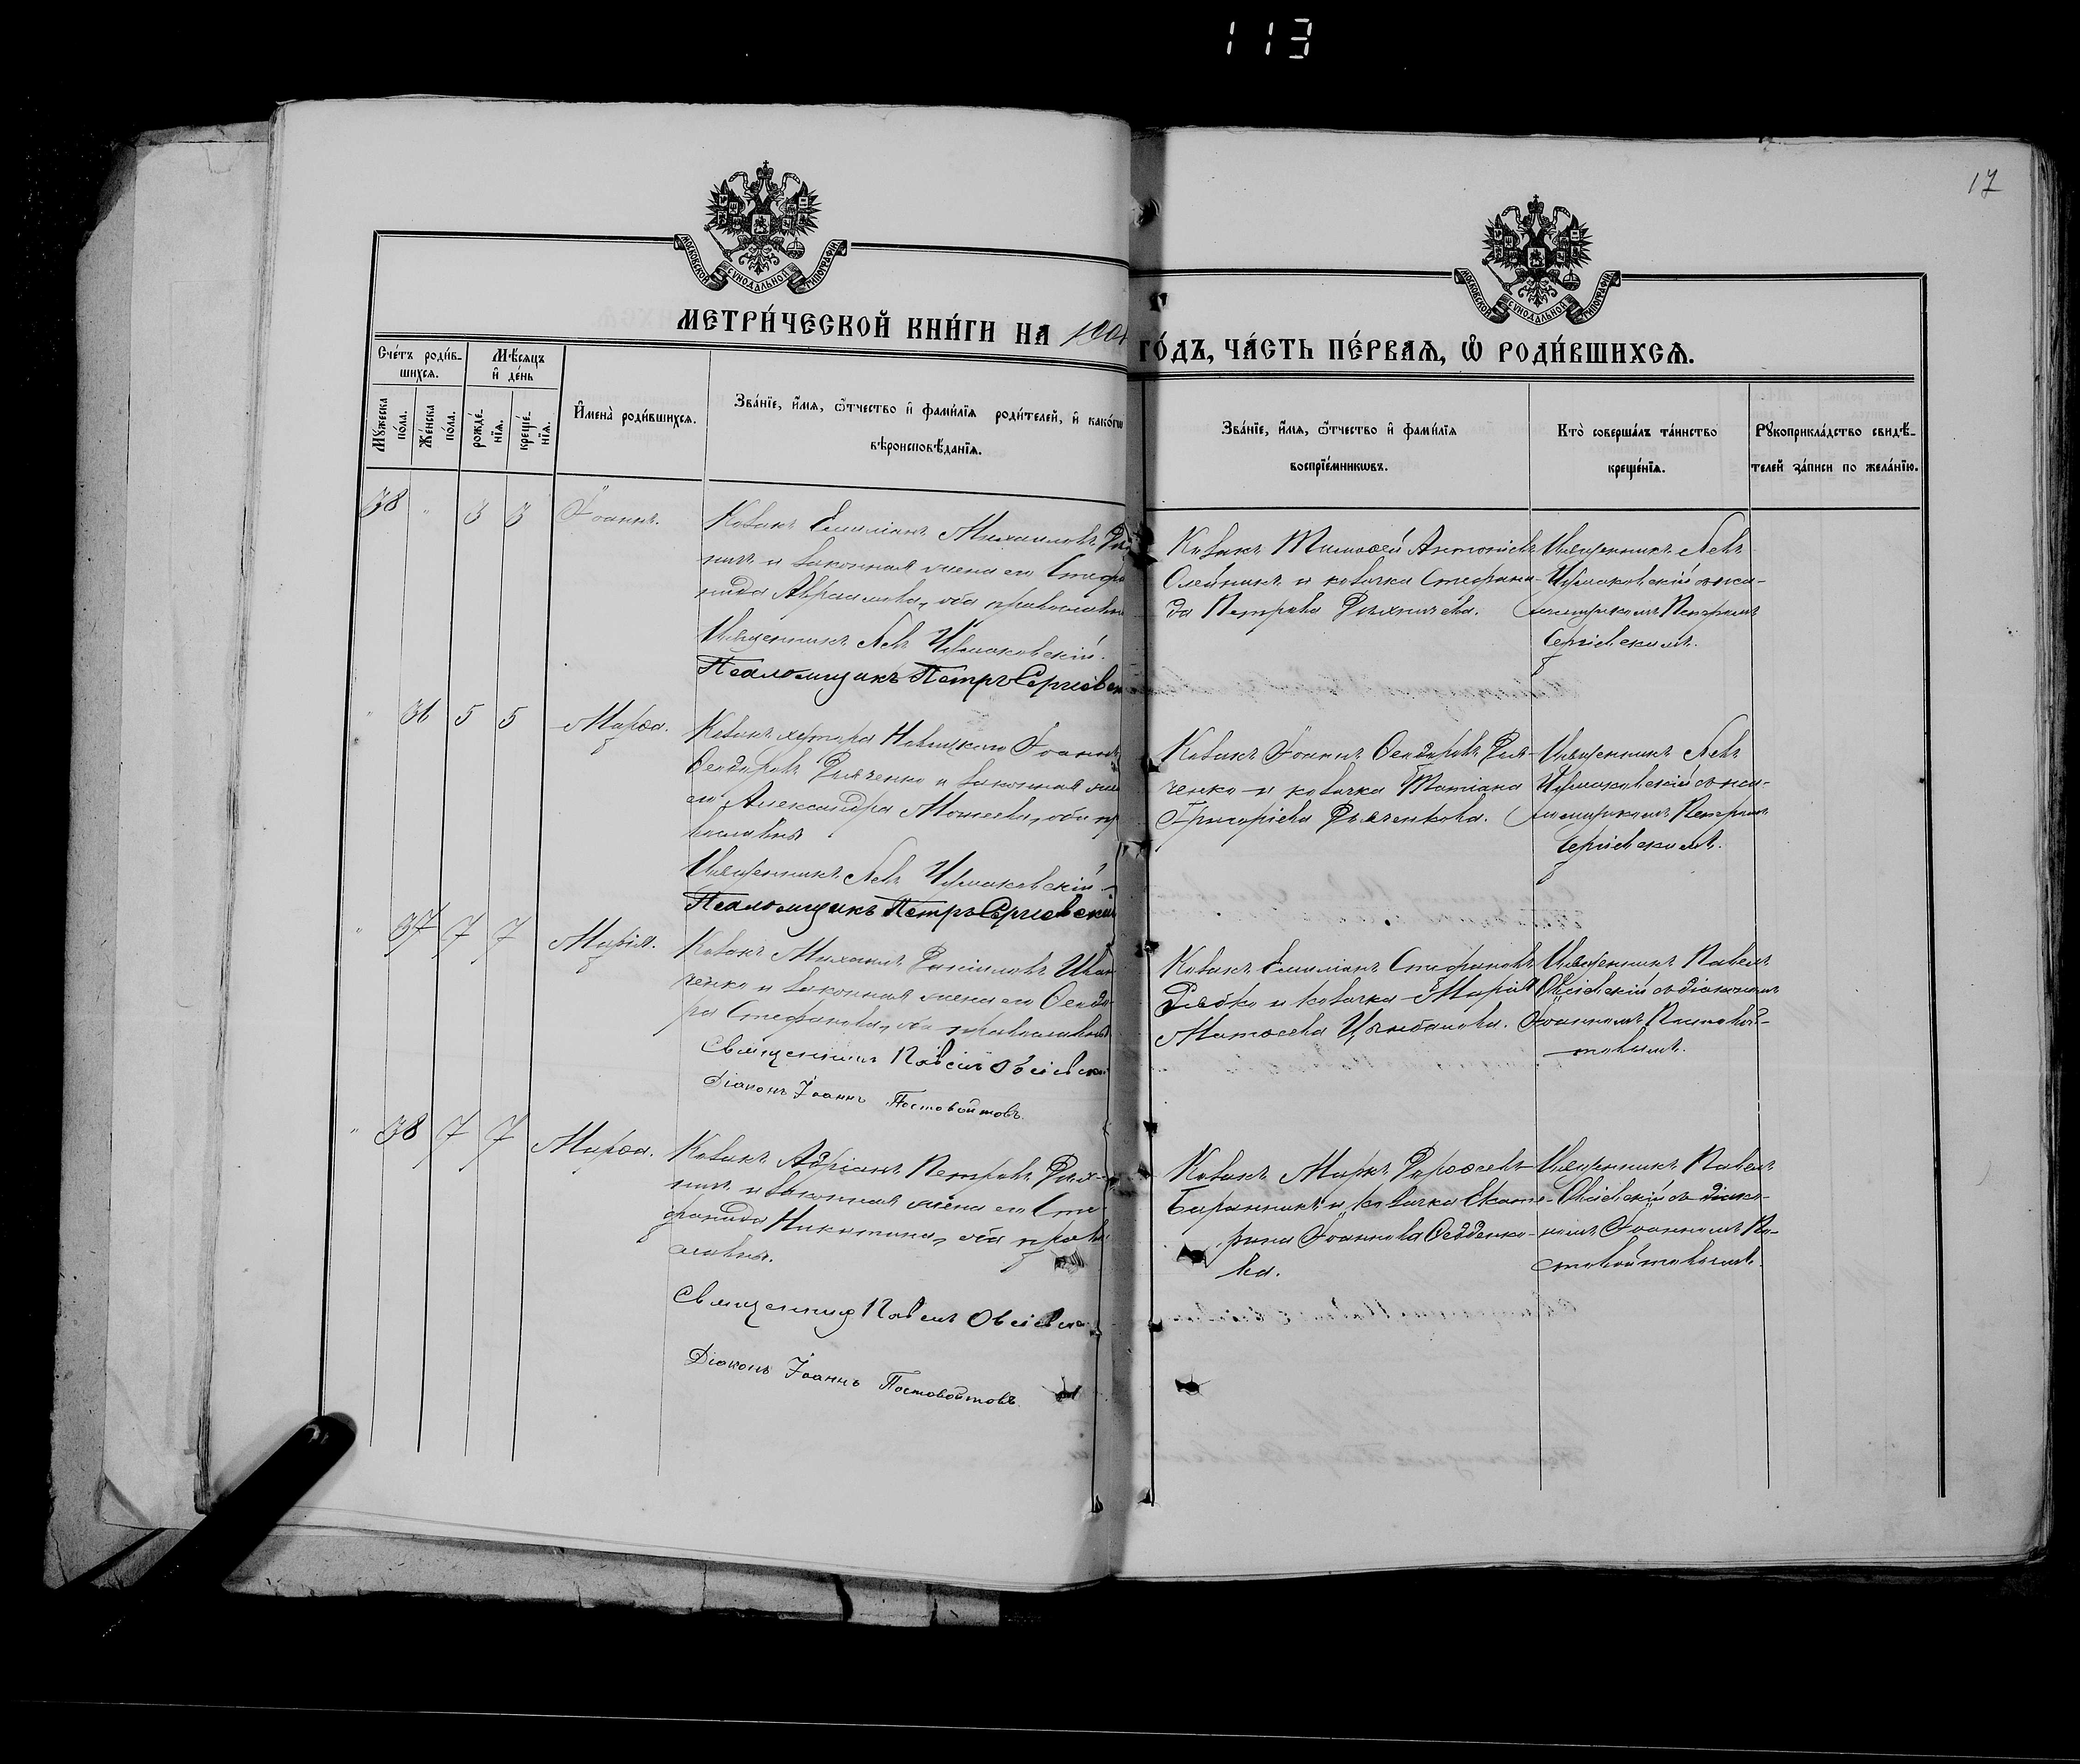 113
17
МОСКОВСКОЙ СѴНОДАЛЬНОЙ ТИПОГРАФІИ
МОСКОВСКОЙ СѴНОДАЛЬНОЙ ТИПОГРАФІИ
МЕТРИ́ЧЕСКОЙ КНИ́ГИ НА
ГО́ДЪ, ЧА́СТЬ ПЕ́РВАѦ, Ѡ РОДИ́ВШИХСѦ.
Сче́тъ роди́в-
шихсѧ.
Мѣ́сѧцъ
и҆ де́нь
Мꙋжеска
по́ла.
Же́нска
по́ла.
рожде́-
нїѧ.
креще́-
нїѧ.
И҆мена̀ роди́вшихсѧ.
Зва́нїе, и҆́мѧ, ѻ҆́тчество и҆ фами́лїѧ роди́телей, и҆ како́гѡ
вѣроисповѣ́данїѧ.
Зва́нїе, и҆́мѧ, ѻ҆́тчество и҆ фами́лїѧ
воспрїе́мникѡвъ.
Кто̀ соверша́лъ та́инство
креще́нїѧ.
Рꙋкоприкла́дство свидѣ́-
телей за́писи по жела́нїю.
38 " 3 3 Іоаннъ.
Козакъ Емиліанъ Михаиловъ
и законная жена его Стефа
нида Авраамова, оба православн
Священникъ Левъ Чермаковскій.
Псаломщикъ Петръ Сергіевск
Козакъ Тимоѳей Антоніевъ
Олейникъ и козачка Стефани-
да Петрова
Священникъ Левъ
Чермаковскій съ пса-
ломщикомъ Петромъ
Сергіевскимъ.
" 36 5 5 Марѳа.
Козакъ хутора Іоаннъ
Ѳеодоровъ Дяченко и законная жен
его Александра Моисеева, оба пр
вославны
Священникъ Левъ Чермаковскій
Псаломщикъ Петръ Сергіевскій
Козакъ Іоаннъ Ѳеодоровъ Дя-
ченко и козачка Татіана
Григоріева Дяченкова.
Священникъ Левъ
Чермаковскій съ пса-
ломщикомъ Петромъ
Сергіевскимъ.
" 37 7 7 Марія.
Козакъ Михаилъ Даніиловъ Ива
ченко и законная жена его Ѳеодо-
ра Стефанова, оба православны
Священникъ Павелъ Овсіевск
Діаконъ Іоаннъ Постовойтовъ.
Козакъ Емиліанъ Стефановъ
и козачка Марія
Матѳеева Цымбалова.
Священникъ Павелъ
Овсіевскій съ діакономъ
Іоанномъ Постовой-
товымъ.
" 38 7 7 Марѳа.
Козакъ Адріанъ Петровъ
и законная жена его Сте-
фанида Никитина, оба право
славны.
Священникъ Павелъ Овсіевск
Діаконъ Іоаннъ Постовойтовъ.
Козакъ Маркъ Дороѳеевъ
Баранникъ и козачка Екате-
рина Іоаннова
ва.
Священникъ Павелъ
Овсіевскій съ діако-
номъ Іоанномъ По-
стовойтовымъ.